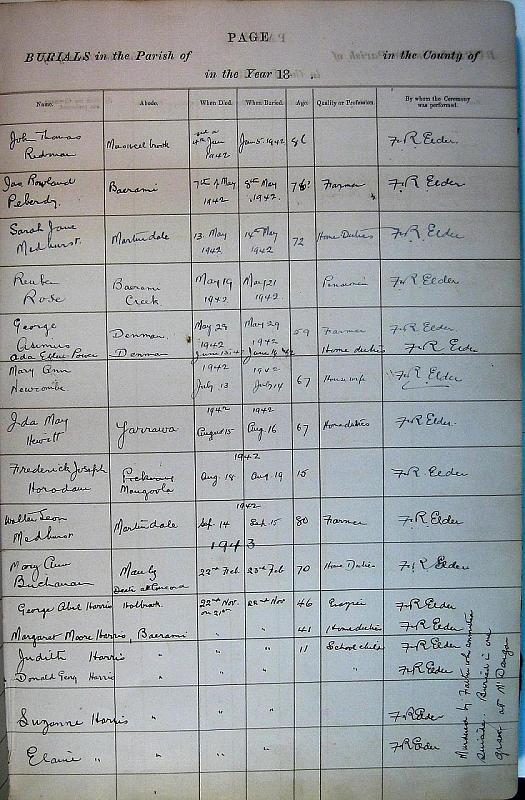 PAGE
BURIALS in the Parish of in the County of
in the Year 18
Name. Abode. When Died. When Buried. Age. Quality or Profession. By whom the Ceremony was performed.
John Thomas
Redman 4th Jan 1942 Jan 5. 1942 86 F. R. Elder.
Jas Rowland Baerami 7th of May 8th May 76 Farmer F. R Elder
1942 1942
Sarah Jane
Medhurst. Martindale 13. May 14th May 72 Home Duties F. R. Elder
1942 1942
Reuben Baerami May 19 May 21 Pensioner F R Elder
Rose Creek 1942 1942.
George Denman May 29 May 29 59 Farmer F. R Elder
1942 1942
Ada Ellen Power Denman Home duties F R Elder
Mary Ann 1942 1942
Newcombe July 13 July 14 67 Housewife F. R. Elder
1942 1942
Ida May Yarrawa August 15 Aug. 16 67 Home duties F. R Elder.
Hewett
1942
Frederick Joseph Aug. 18 Aug. 19 15 F R Elder
Horadam Mangoola
1942
Walter Leon
Medhurst Martindale Sep. 14 Sep. 15 80 Farmer F. R Elder
1943
Mary Ann Manly 22nd Feb 23rd Feb 70 Home Duties F. R Elder
Buchanan Death at Concord
George Abel Harris Holbrook 22nd Nov. 22nd Nov 46 Grazier F R Elder
or 21st
Margaret Moore Harris, Baerami " " 41 Home duties F R Elder
Judith Harris " " " 11 School child F R Elder
Donald Harris " " F R Elder
Suzanne Harris " " " F R Elder
Elaine " " " " F R Elder
Murdered by Father who committed
suicide. Buried in one
grave at